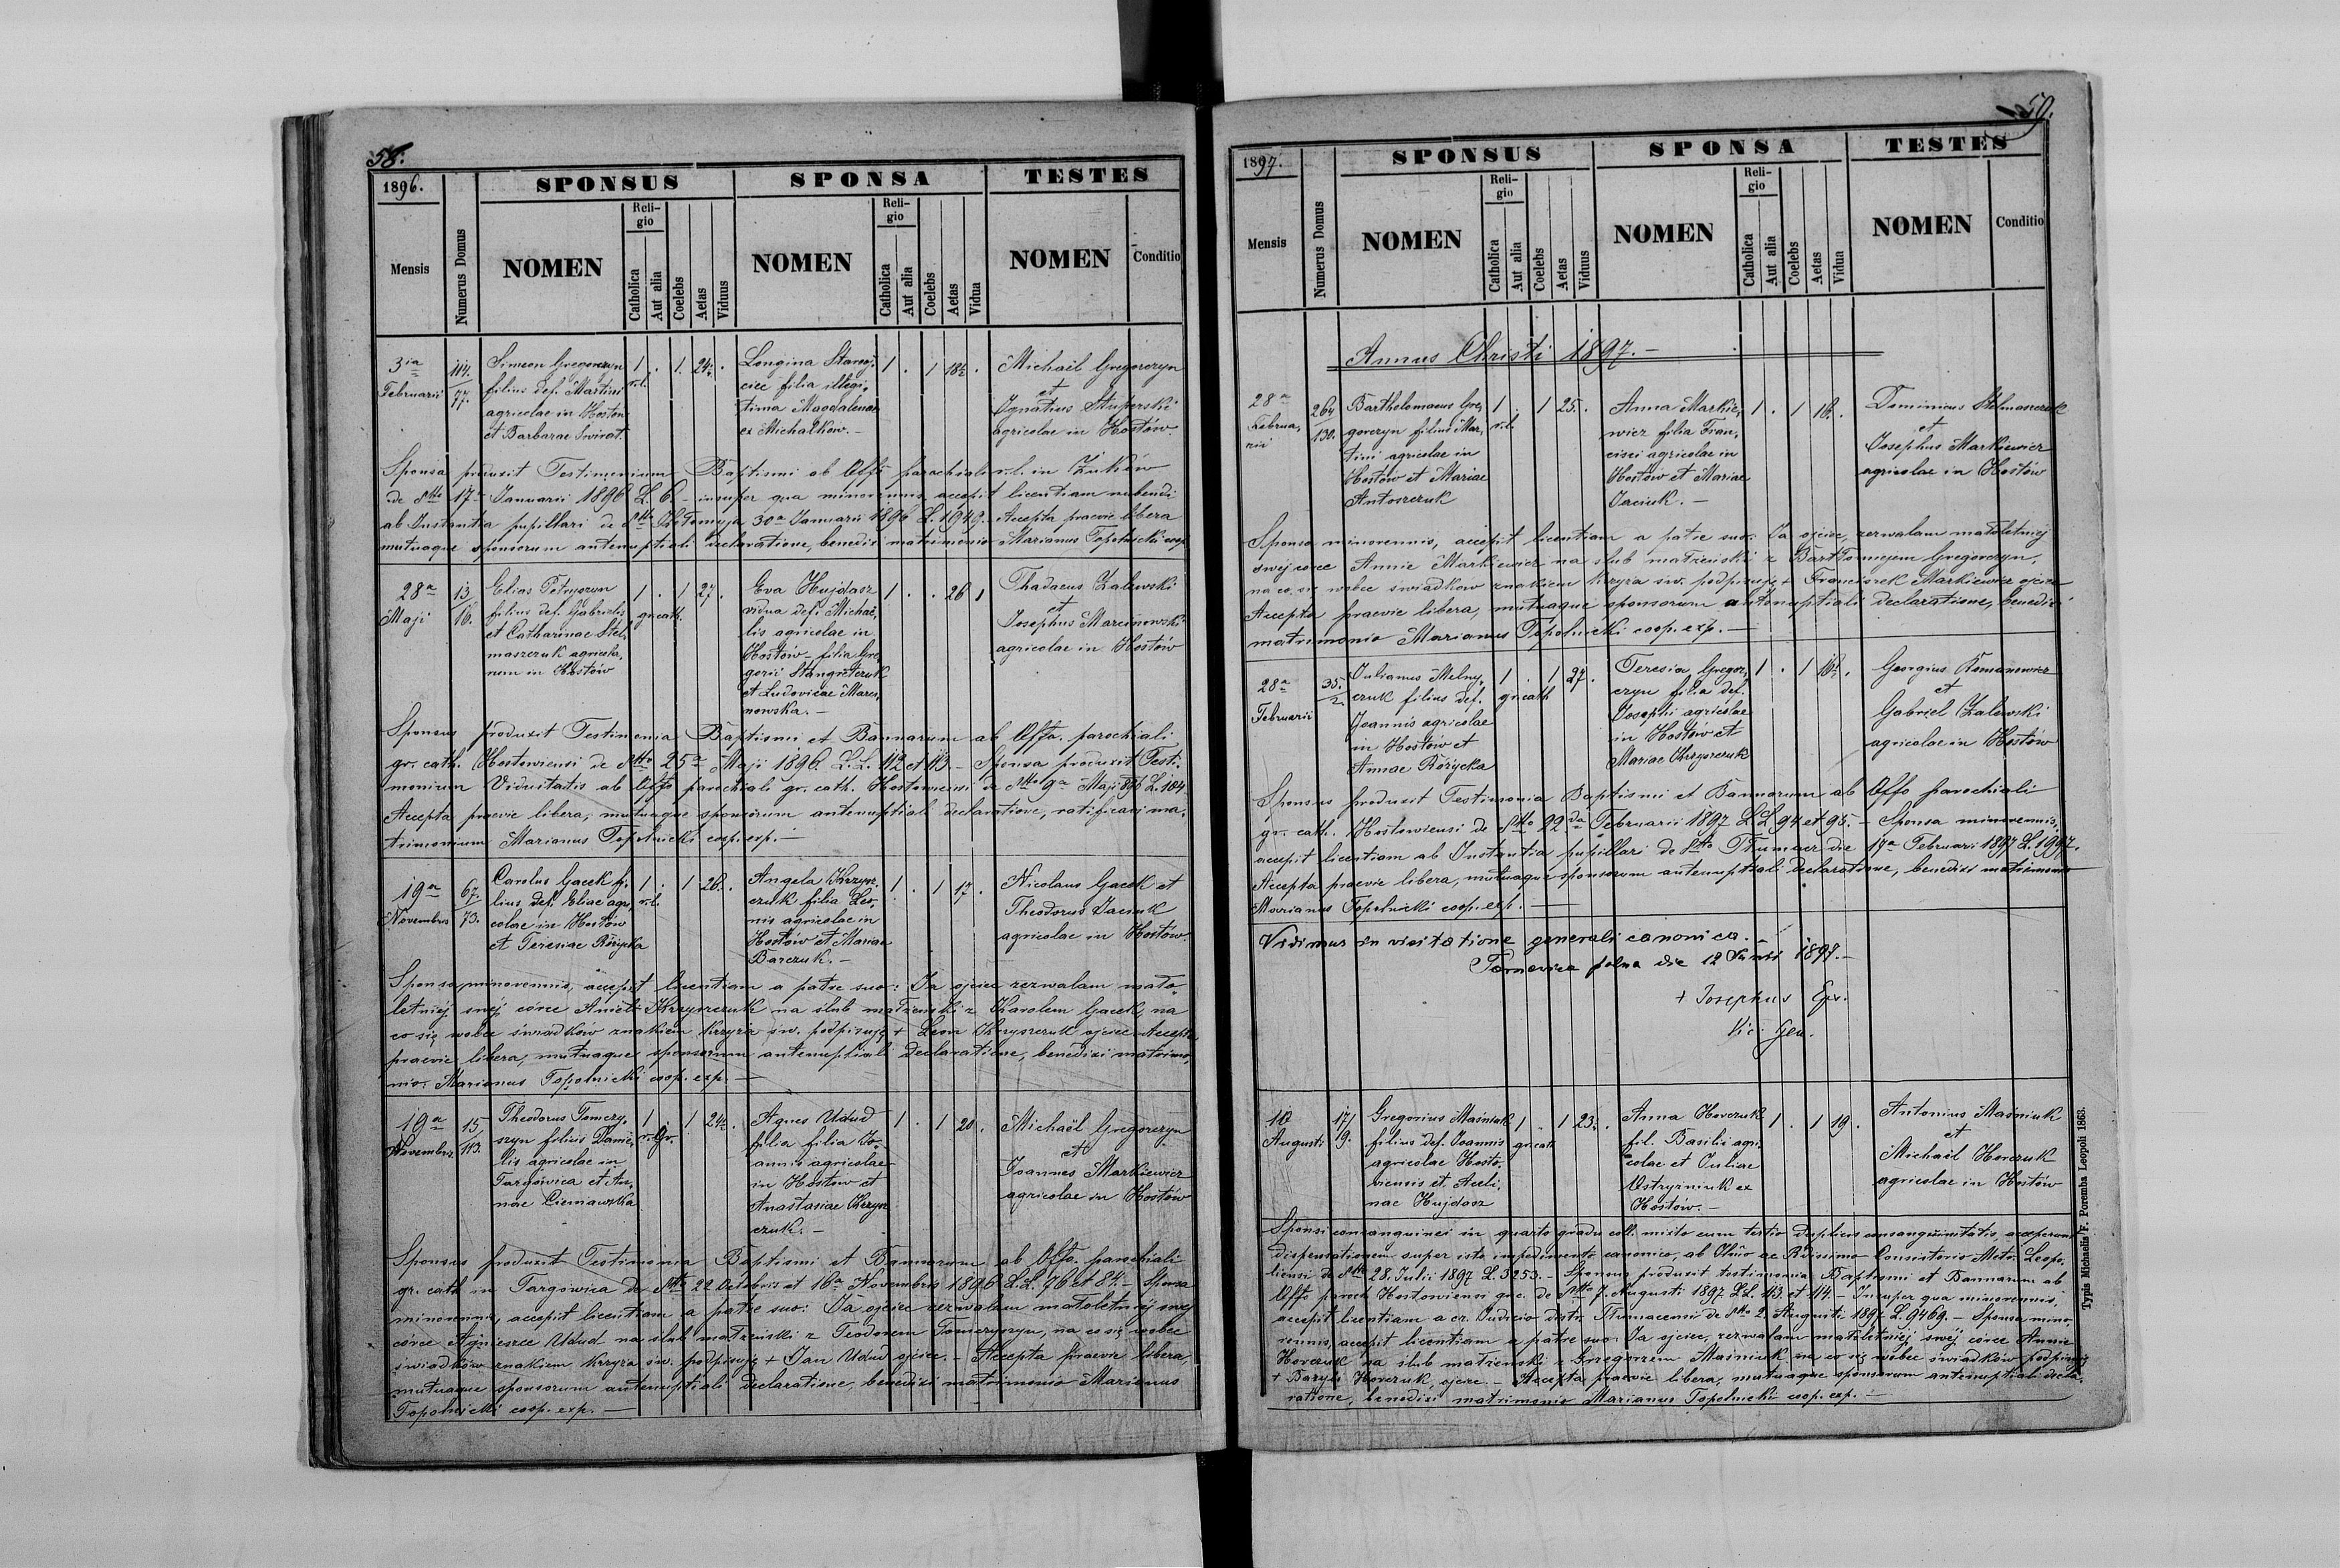 58.
1896.
SPONSUS
SPONSA
TESTES
Mensis
Numerus Domus
NOMEN
Religio
Catholica
Aut alia
Coelebs
Aetas
Viduus
NOMEN
Religio
Catholica
Aut alia
Coelebs
Aetas
Vidua
NOMEN
Conditio
3ia
Februarii
114.
77.
Simeon Gregorczyn
filius def. Martini
agricolae in Hostów
et Barbarae
1
r.l.
.
1.
24
.
Longina
filia illegi-
tima Magdalenae
ex Michałków. –
1
.
1
18½
.
Michaël Gregorczyn
et
Ignatius Stuperski
agricolae in Hostów.
Sponsa produxit Testimonium Baptismi ab Offo parochiali r.l. in Żuków
de dtto 17 Januarii 1896 L. 6 – insuper qua minorennis accepit licentiam nubendi
ab Instantia pupillari de dtto Kołomyja 30a Januarii 1896 L. 1949. Accepta praevie libera
mutuaque sponsorum antenuptiali declaratione, benedixi matrimonio Marianus Topolnicki coop.
28a
Maji
13
16.
Elias Petryszyn
filius def. Gabrielis
et Catharinae Stel-
maszczuk agricola-
rum in Hostów
1
gr.cath.
.
1
27
.
Eva Hujdasz
vidua def. Michaë-
lis agricolae in
Hostów – filia Gre-
gorii Stangreteruk
et Ludovicae Marci-
nowska. –
1
.
.
26
1
Thadaeus Zalewski
et
Josephus Marcinowski
agricolae in Hostów
Sponsus produxit Testimonia Baptismi et Bannorum ab Offo. parochiali
gr. cath. Hostowiensi de dtto 25a Maji 1896. L.L. 112 et 113 – Sponsa produxit Testi-
monium Viduitatis ab Offo parochiali gr. cath. Hostowiensi de dtto 9a Maji 896 L. 104
Accepta praevie libera, mutuaque sponsorum antenuptiali declaratione, ratificavi ma-
trimonium Marianus Topolnicki coop. exp. –
19a
Novembris
67.
73.
Carolus Gacek fi-
lius def. Eliae agri-
colae in Hostów
et Teresiae Różycka
1
r.l.
.
1
26.
.
Angela Krzysz-
czuk filia Leo-
nis agricolae in
Hostów et Mariae
Barczuk. –
1
.
1
17
.
Nicolaus Gacek et
Theodorus Jaciuk
agricolae in Hostów.
Sponsa minorennis, accepit licentiam a patre suo: Ja ojciec zezwalam mało-
letniéj swéj córce Anieli Krzyszczuk na ślub małżeński z Karolem Gacek, na
co się wobec świadków znakiem krzyża św. podpisuję + Leon Krzyszczuk ojciec. Accepta
praevie libera, mutuaque sponsorum antenuptiali declaratione, benedixi matrimo-
nio. Marianus Topolnicki coop. exp. –
19a
Novembris
15
113.
Theodorus Tomczy-
szyn filius Danie-
lis agricolae in
Targowica et An-
nae
1
.
1
24
.
Agnes Udud
filia filia Jo-
annis agricolae
in Hostów et
Anastasiae Krzysz-
czuk. –
1
.
1
20
.
Michaël Gregorczyn
et
Joannes Markiewicz
agricolae in Hostów
Sponsus produxit Testimonia Baptismi et Bannorum ab Offo. parochiali
gr. cath in Targowica de dtto 22 Octobris et 16a Novembris 1896 L.L. 76 et 84. – Sponsa
minorennis, accepit licentiam a patre suo: Ja ojciec zezwalam małoletniéj swej
córce Agnieszce Udud na ślub małżeński z Teodorem Tomczyszyn, na co się wobec
świadków znakiem krzyża św. podpisuję + Jan Udud ojciec. – Accepta praevie libera,
mutuaque sponsorum antenuptiali declaratione, benedixi matrimonio Marianus
Topolnicki coop. exp. –
59.
1897.
SPONSUS
SPONSA
TESTES
Mensis
Numerus Domus
NOMEN
Religio
Catholica
Aut alia
Coelebs
Aetas
Viduus
NOMEN
Religio
Catholica
Aut alia
Coelebs
Aetas
Vidua
NOMEN
Conditio
Annus Christi 1897. –
28a
Februa-
rii
264
130.
Bartholomaeus Gre-
gorczyn filius Mar-
tini agricolae in
Hostów et Mariae
Antoszczuk
1
r.l.
.
1
25.
.
Anna Markie-
wicz filia Fran-
cisci agricolae in
Hostów et Mariae
Jaciuk. –
1
.
1
18.
.
Dominicus Stelmaszczuk
et
Josephus Markiewicz
agricolae in Hostów
Sponsa minorennis, accepit licentiam a patre suo: Ja ojciec, zezwalam małoletniéj
swej córce Annie Markiewicz na ślub małżeński z Bartłomiejem Gregorczyn,
na co się wobec świadków znakiem krzyża św. podpisuję + Franciszek Markiewicz ojciec
Accepta praevie libera, mutuaque sponsorum antenuptiali declaratione, benedixi
matrimonio Marianus Topolnicki coop. exp. –
28a
Februarii
35.
2.
Julianus Melny-
czuk filius def.
Joannis agricolae
in Hostów et
Annae Różycka
1
gr.cath
.
1
27
.
Teresia Gregor-
czyn filia def.
Josephi agricolae
in Hostów et
Mariae Krzyszczuk
1
.
1
.
Georgius Romanowicz
et
Gabriel Zalewski
agricolae in Hostów
Sponsus produxit Testimonia Baptismi et Bannorum ab Offo parochiali
gr. cath. Hostowiensi de dtto 22da Februarii 1897 L.L 94 et 95. – Sponsa minorennis,
accepit licentiam ab Instantia pupillari de dtto Tłumacz die 17a Februarii 1897 L. 1997.
Accepta praevie libera, mutuaque sponsorum antenuptiali declaratione, benedixi matrimonio
Marianus Topolnicki coop. exp. –
Vidimus in visitatione generali canonica.
Tarnowica polna die 12 Junii 1897. –
+ Josephus Epp.
Vic. Gen.
10
Augusti
17
9.
Gregorius Maśniuk
filius def. Joannis
agricolae Hosto-
viensis et Aceli-
nae Hujdasz
1
gr.cath
.
1
23
.
Anna Horczuk
fil. Basilii agri-
colae et Juliae
Ostryżniuk ex
Hostów. –
1
.
1
19
.
Antonius Maśniuk
et
Michaël Horczuk
agricolae in Hostów
Sponsi consanguinei in quarto gradu coll. mixto cum tertio duplicis consanguinitatis, acceperunt
dispensationem super isto impedimento canonico, ab Illmo ac Rdissimo Consistorio Metr. Leopo-
liensi de dtto 28. Julii 1897 L. 3253. – Sponsus produxit testimonia Baptismi et Bannorum ab
Offo paroch Hostowiensi g.c. de dtto 7. Augusti 1897. LL. 113. et 114. – Insuper qua minorennis,
accepit licentiam a cr. Judicio distr. Tłumacensi de dtto 2. Augusti 1897 L. 9469. – Sponsa mino-
rennis, accepit licentiam a patre suo: Ja ojciec, zezwalam małoletniéj swéj córce Annie
Horczuk na ślub małżeński z Grzegorzem Maśniuk na co się wobec świadków podpisuję
+ Bazyli Horczuk, ojciec. – Accepta praevie libera, mutuaque sponsorum antenuptiali decla-
ratione, benedixi matrimonio Marianus Topolnicki coop. exp. –
Typis Michaelis F. Poremba Leopoli 1868.